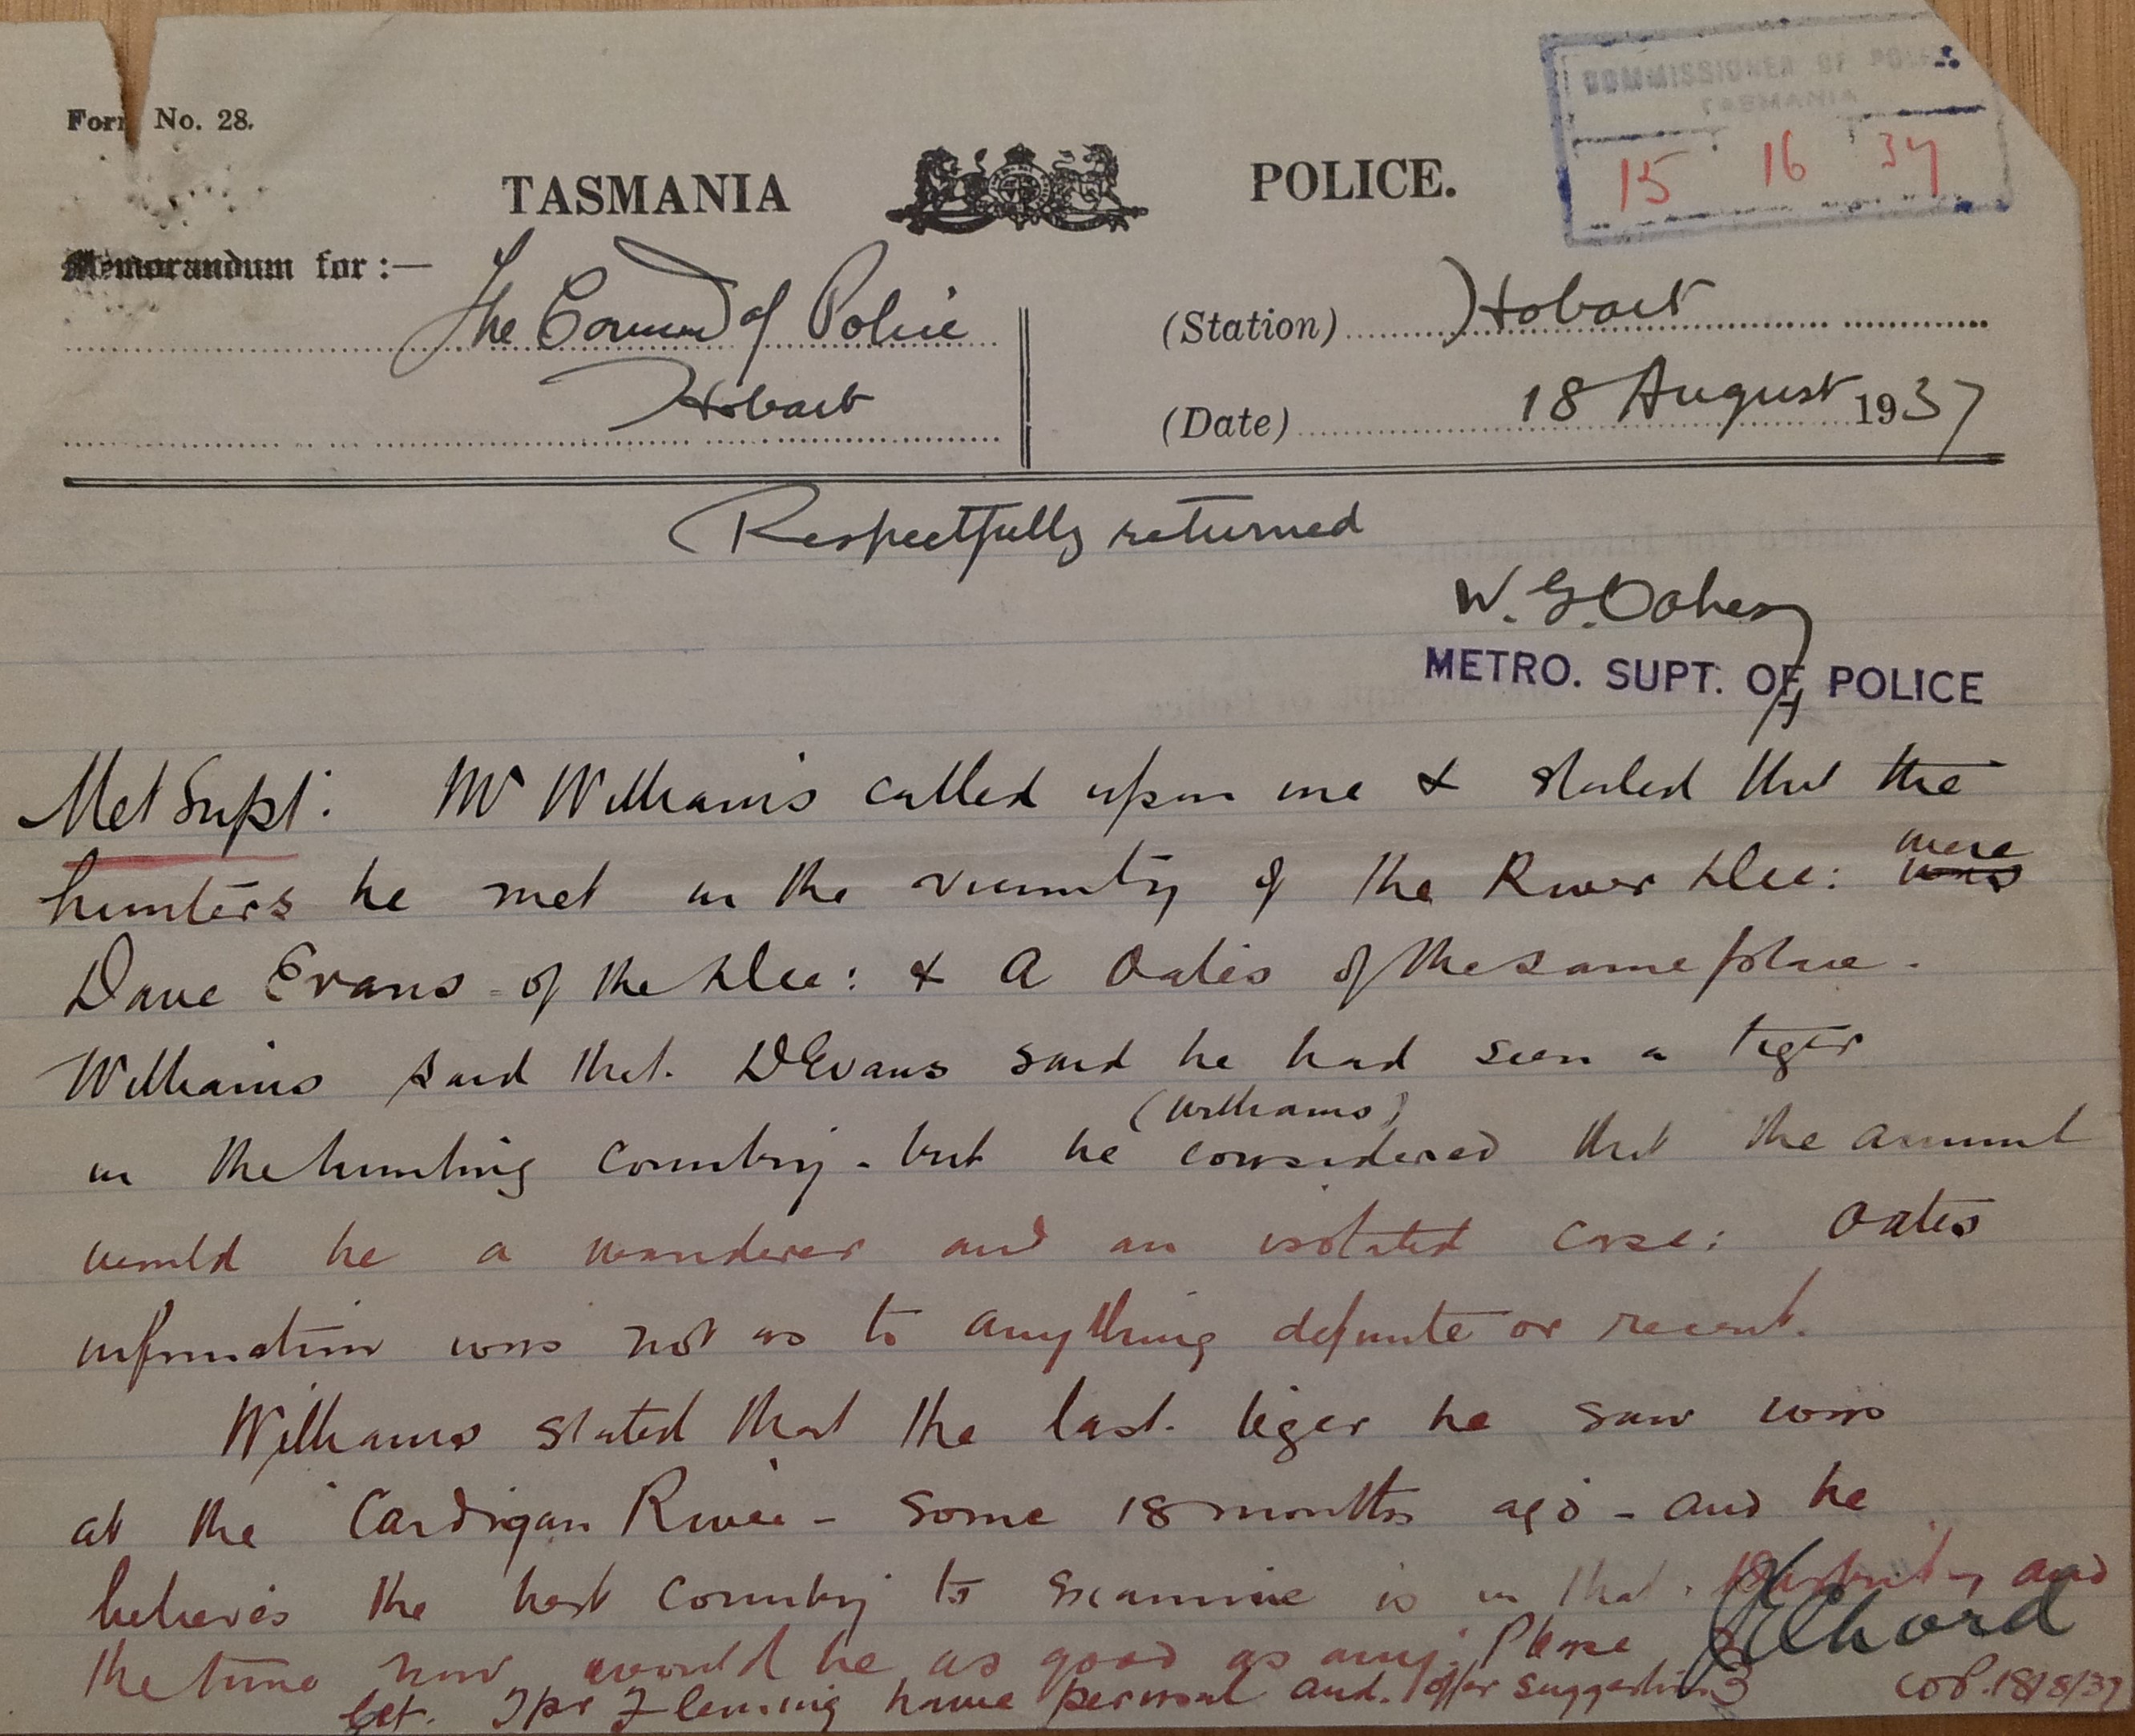 Form No. 28.
COMMISSIONER OF POLICE
TASMANIA
15 16 37
TASMANIA POLICE.
Memorandum for :—
The Commr of Police
Hobart
(Station) Hobart
(Date) 18 August 1937
Respectfully returned
W. G.
METRO. SUPT. OF POLICE
Met Supt: Mr Williams called upon me & stated that the
hunters he met in the vicinity of the River Dee: were was
Dave Evans of the Dee: & A Oates of the same place.
Williams said that D Evans said he had seen a tiger
in the hunting country - but he (Williams) considered that the animal
would be a wanderer and an isolated case: Oates
information was not as to anything definite or recent.
Williams stated that the last tiger he saw was
at the Cardigan River - some 18 months ago - and he
believes the best country to examine is in that District, and
the time now would be as good as any: Please
let Tpr Fleming have perusal and offer suggestions
COP. 18/8/37